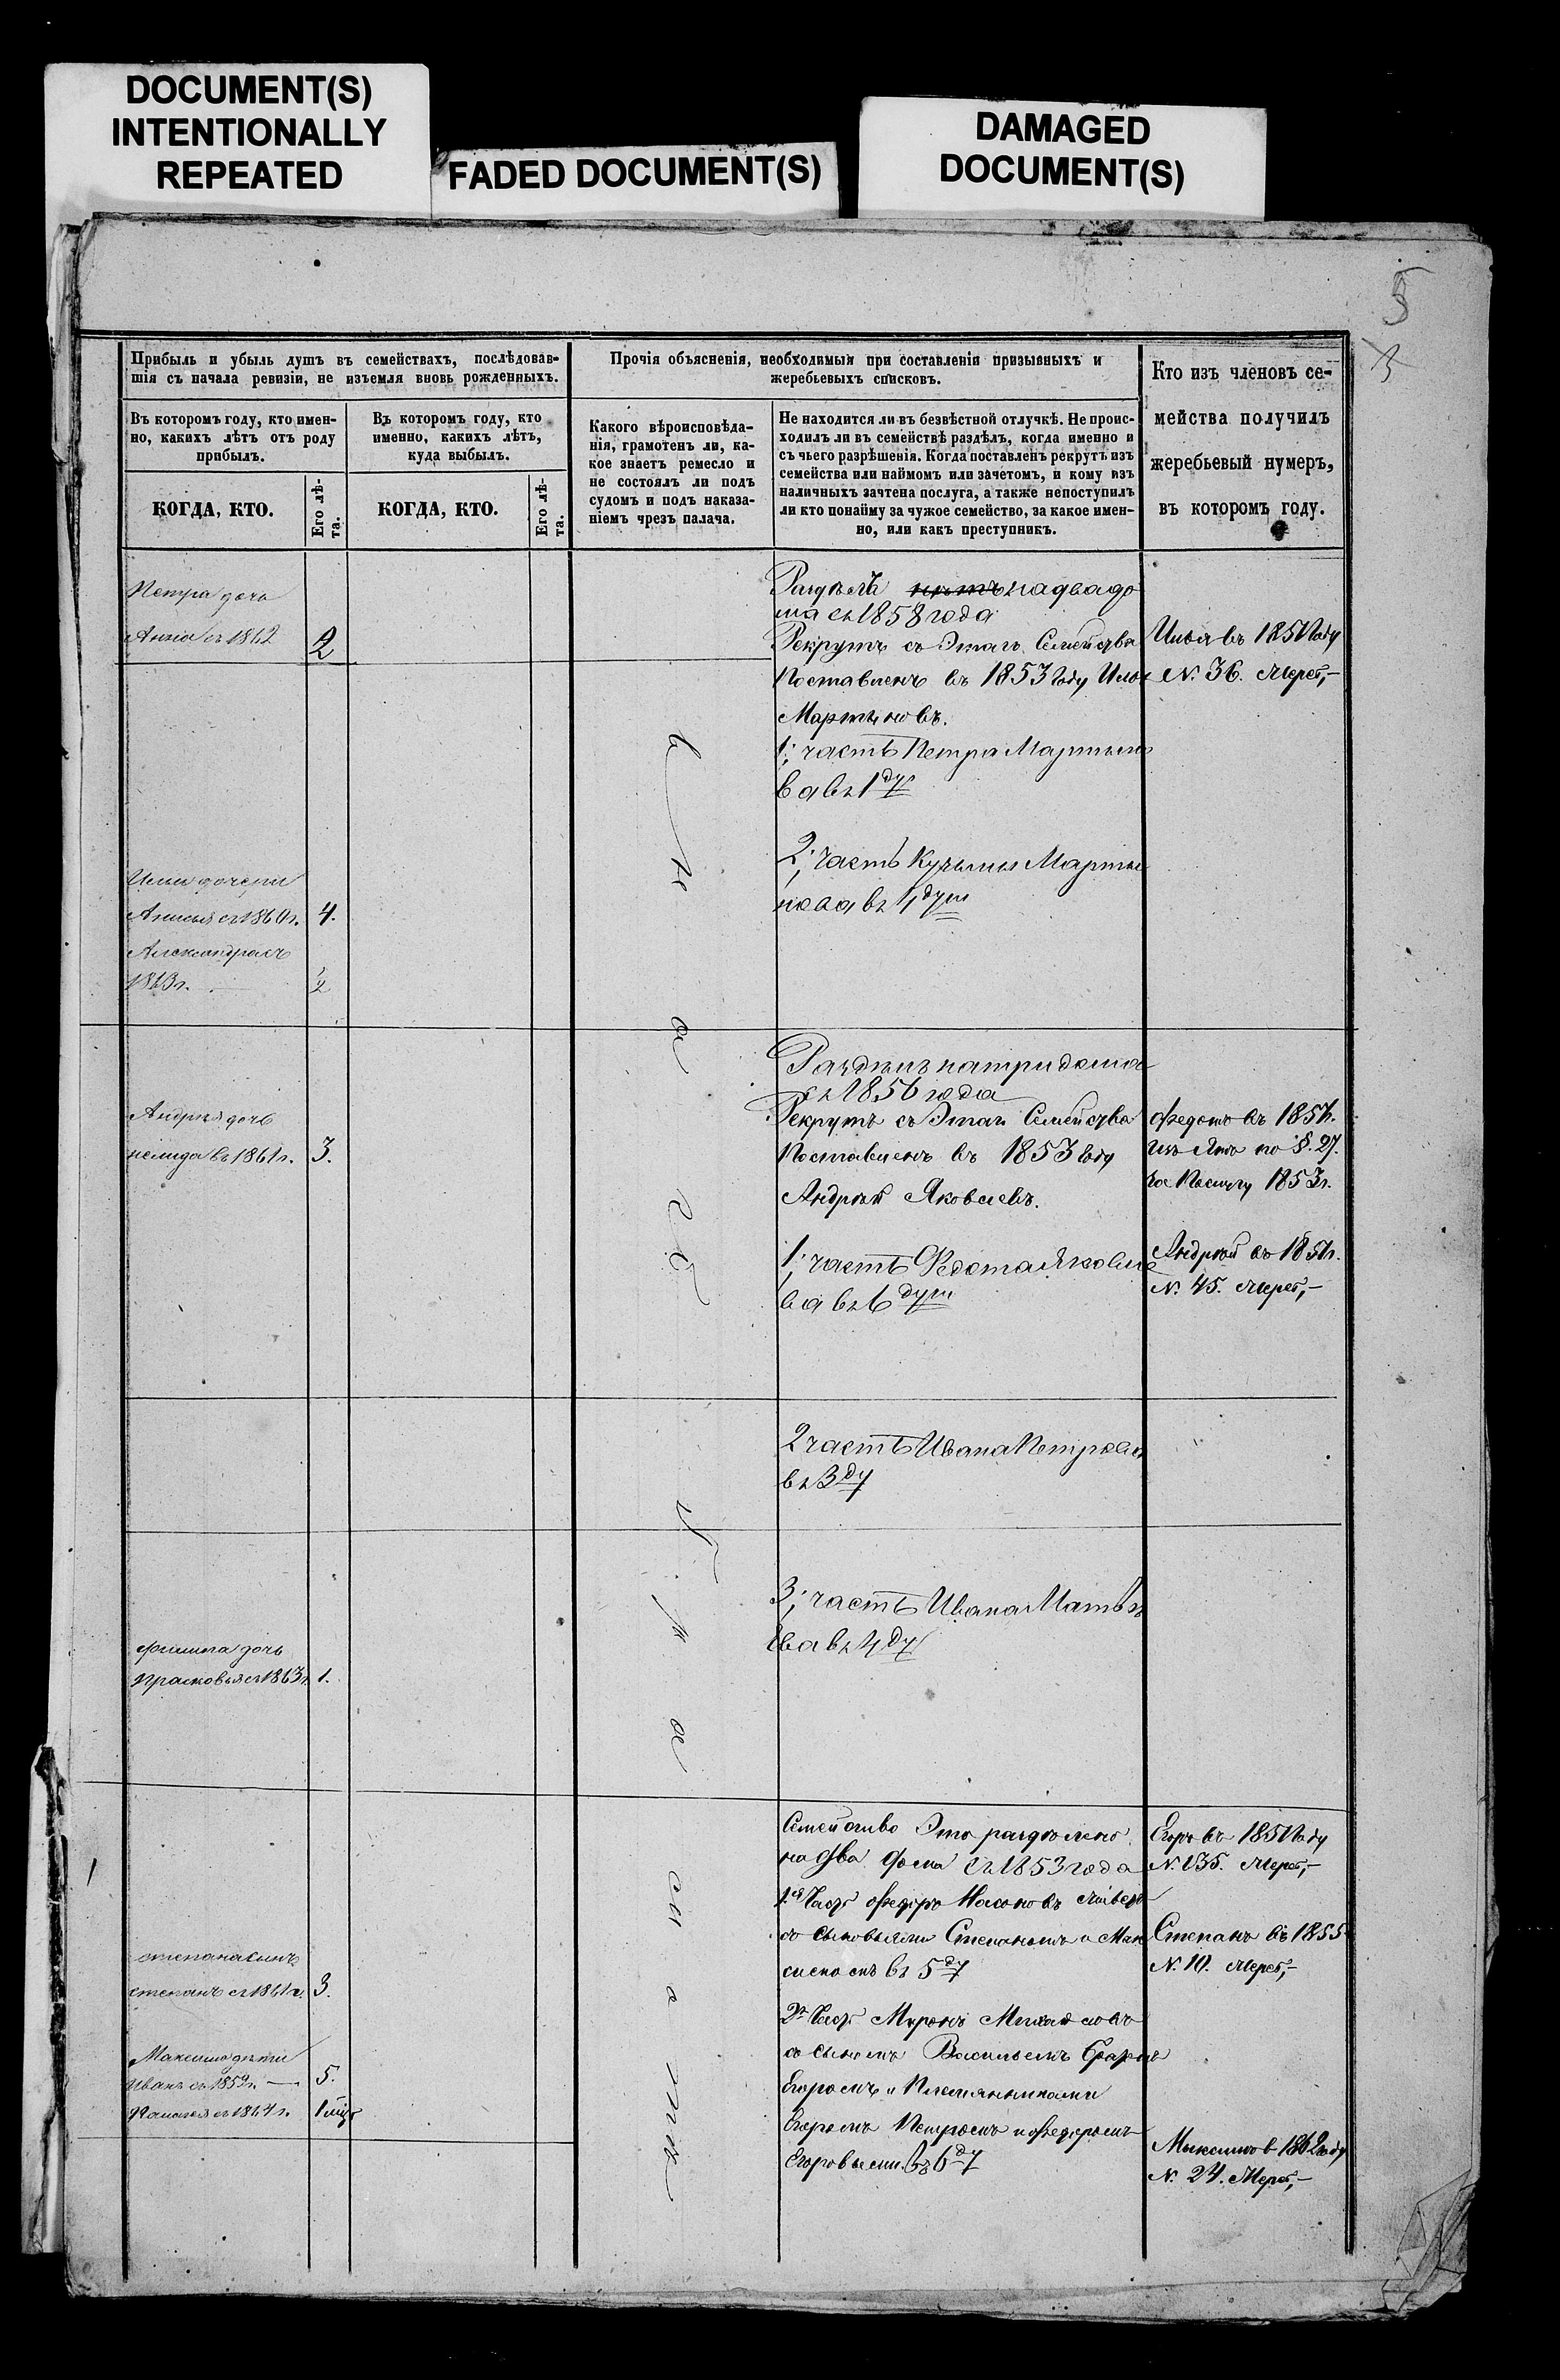 DOCUMENT(S)
INTENTIONALLY
REPEATED
FADED DOCUMENT(S)
DAMAGED
DOCUMENT(S)
5
Прибыль и убыль душъ въ семействахъ, послѣдовав-
шія съ начала ревизіи, не изъемля вновь рожденныхъ.
Въ которомъ году, кто имен-
но, какихъ лѣтъ отъ роду
прибылъ.
КОГДА, КТО.
Его лѣ-
та.
Въ которомъ году, кто
именно, какихъ лѣтъ,
куда выбылъ.
КОГДА, КТО.
Его лѣ-
та.
Прочія объясненія, необходимыя при составленіи призывныхъ и
жеребьевыхъ списковъ.
Какого вѣроисповѣда-
нія, грамотенъ ли, ка-
кое знаетъ ремесло и
не состоялъ ли подъ
судомъ и подъ наказа-
ніемъ чрезъ палача.
Не находится ли въ безвѣстной отлучкѣ. Не проис-
ходилъ ли въ семействѣ раздѣлъ, когда именно и
съ чьего разрѣшенія. Когда поставленъ рекрутъ изъ
семейства или наймомъ или зачетомъ, и кому изъ
наличныхъ зачтена послуга, а также непоступилъ
ли кто понайму за чужое семейство, за какое имен-
но, или какъ преступникъ.
Кто изъ членовъ се-
мейства получилъ
жеребьевый нумеръ,
въ которомъ году.
Петра дочь
Анна съ 1862 2
Раздѣлъ нѣтъ на два до
ма съ 1858 года
Рекрутъ съ Этаго Семейства
Поставленъ въ 1853 году Илья
Мартыновъ.
1; часть Петра Мартыно
ва въ 1 ду
Илья въ 1851 году
N. 36. Мереб,-
2; часть Кузьмы Марты
нова въ 4 душ
Ильи дочери
Анисья съ 1860 г. 4.
Александра съ
1863 г. 2
Раздѣлъ на три дома
съ 1856 года
Рекрутъ съ Этаго Семейства
Поставленъ въ 1853 году
Андрей Яковлевъ.
Андрея дочь
въ 1861 г. 3.
Федотъ въ 1857 г.
по §. 27.
за Послугу 1853 г.
1; часть Федота Яковле
ва въ 6 душ
Андрей въ 1851 г.
N. 45. Мереб,-
2 часть Ивана Петрова
въ 3 ду
3; часть Ивана Матвѣ
ева въ 4 ду
Филипа дочь
Прасковья съ 1863 г. 1.
Семейство Это раздѣлено
на два дома съ 1853 года
1я Часть Федоръ
съ сыновьями Степаномъ и Мак
симомъ въ 5 ду
Егоръ въ 1851 году
N. 135. Мереб,-
Степанъ въ 1855
N. 10. Мереб,-
Степана сынъ
Степанъ съ 1861 г. 3.
2я Часть Миронъ Михайловъ
съ сыномъ Васильемъ братомъ
Егоромъ и Племянниками
Егоромъ Петромъ и Федоромъ
Егоровыми въ 6 ду
Максима дѣти
Иванъ съ 1859 г. 5.
съ 1864 г. 1
Максимъ въ 1862 году
N. 24. Мереб,-